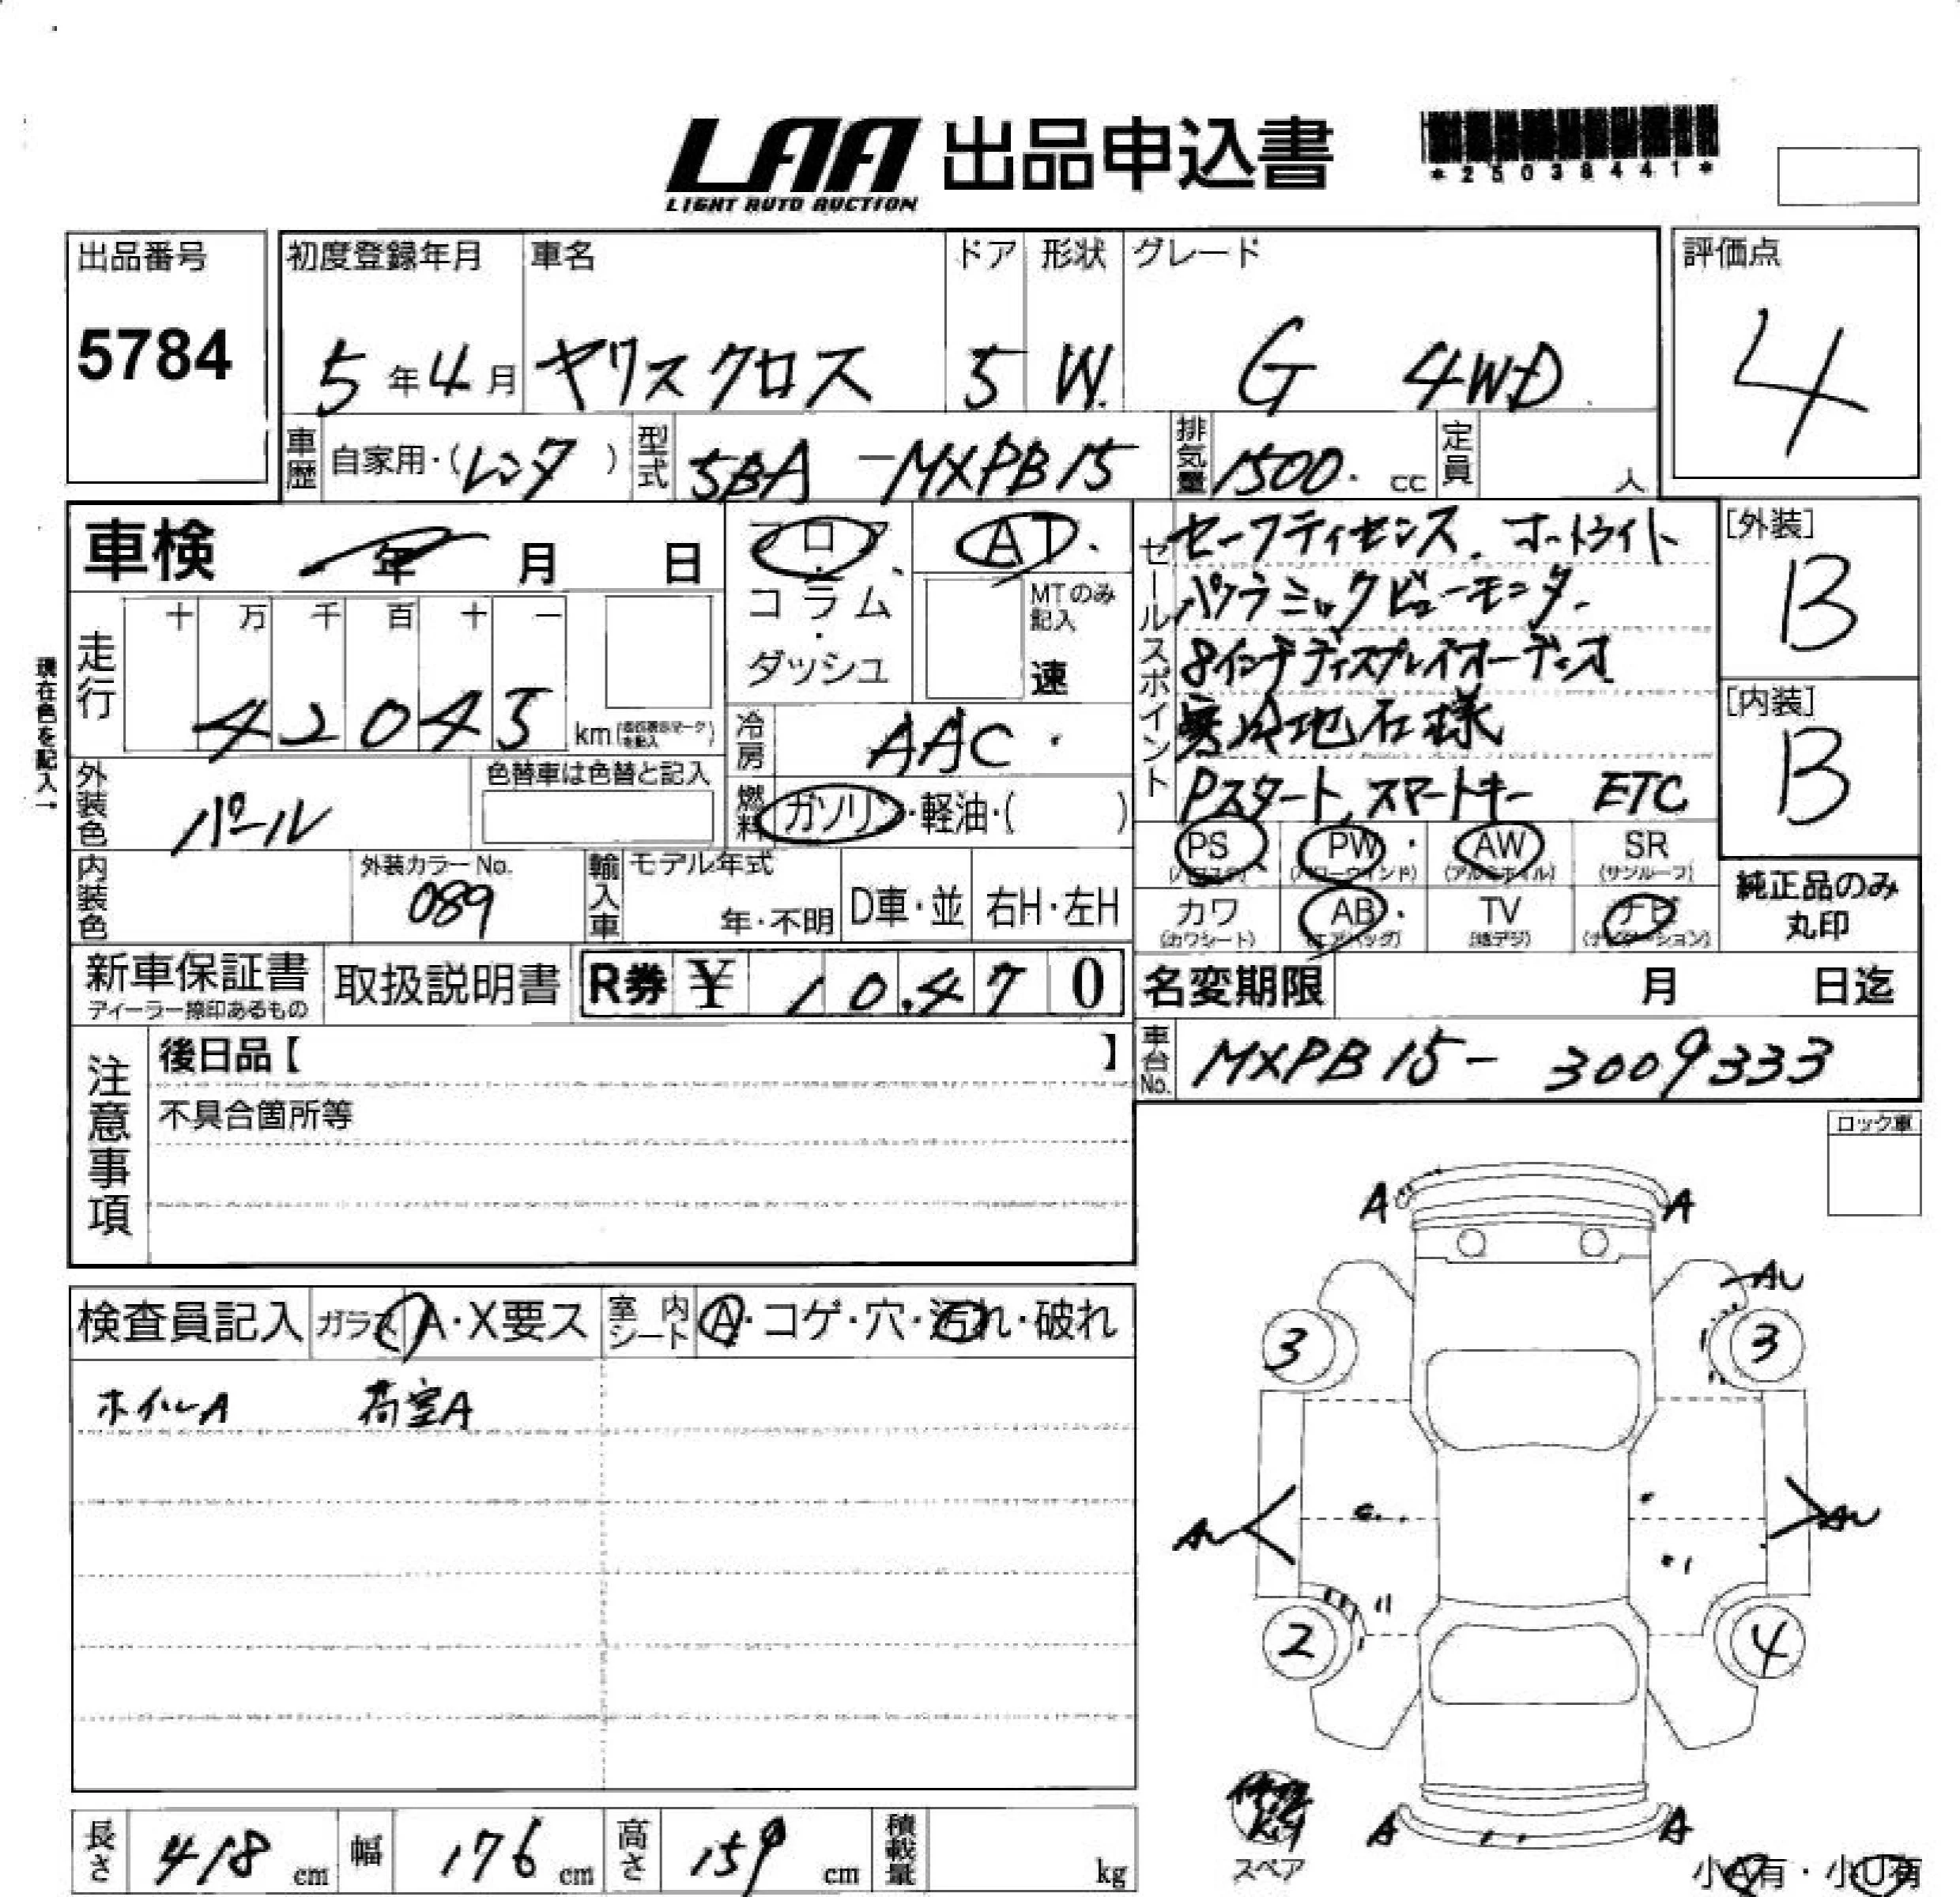 LAA 出品申込書
LIGHT AUTO AUCTION
*25038441*
出品番号 初度登録年月 車名 ドア 形状 グレード 評価点
5784 5年4月 ヤリスクロス 5 W. G 4WD 4
車歴 自家用・(レンタ) 型式 5BA-MXPB15 排気量 1500. cc 定員 人
車検 年 月 日
フロア AT
コラム MTのみ記入
ダッシュ 速
走行 十 万 千 百 十 一
42045 km
現在色を記入→
冷房 AAC
外装色 パール 色替車は色替と記入
燃料 ガソリン・軽油・( )
内装色 外装カラーNo. 089
輸入車 モデル年式 年・不明 D車・並 右H・左H
セールスポイント
セーフティセンス. オートライト
パノラミックビューモニター
8インチディスプレイオーディオ
寒冷地仕様
Pスタート, スマートキー ETC
[外装] B
[内装] B
PS PW AW SR
(パワステ) (パワーウインド) (アルミホイル) (サンルーフ)
カワ AB TV ナビ
(カワシート) (エアバッグ) (地デジ) (ナビゲーション)
純正品のみ丸印
新車保証書 取扱説明書 R券 ¥ 10,470
ディーラー捺印あるもの
名変期限 月 日迄
注意事項
後日品【 】
不具合箇所等
車台No. MXPB15-3009333
ロック車
検査員記入 ガラス A・X要ス 室内シート A・コゲ・穴・汚れ・破れ
ホイルA 荷室A
A A
AU
3 3
AU AU
2 4
A A
スペア
小A有・小U有
長さ 418 cm 幅 176 cm 高さ 159 cm 積載量 kg